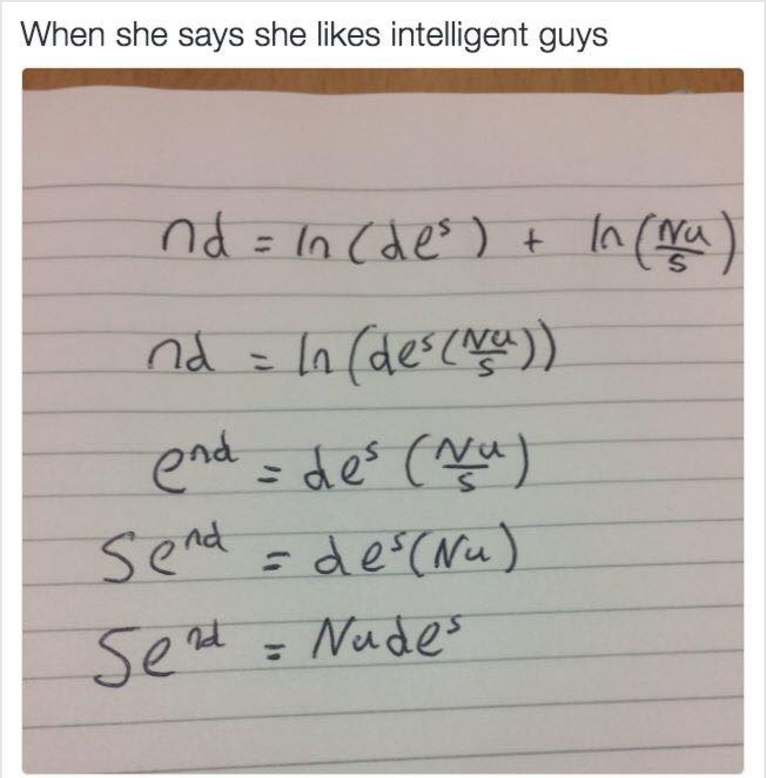 When she says she likes intelligent guys
nd = ln (deˢ) + ln (Nu/s)
nd = ln (deˢ(Nu/s))
eⁿᵈ = deˢ (Nu/s)
Seⁿᵈ = deˢ(Nu)
Seⁿᵈ = Nudeˢ